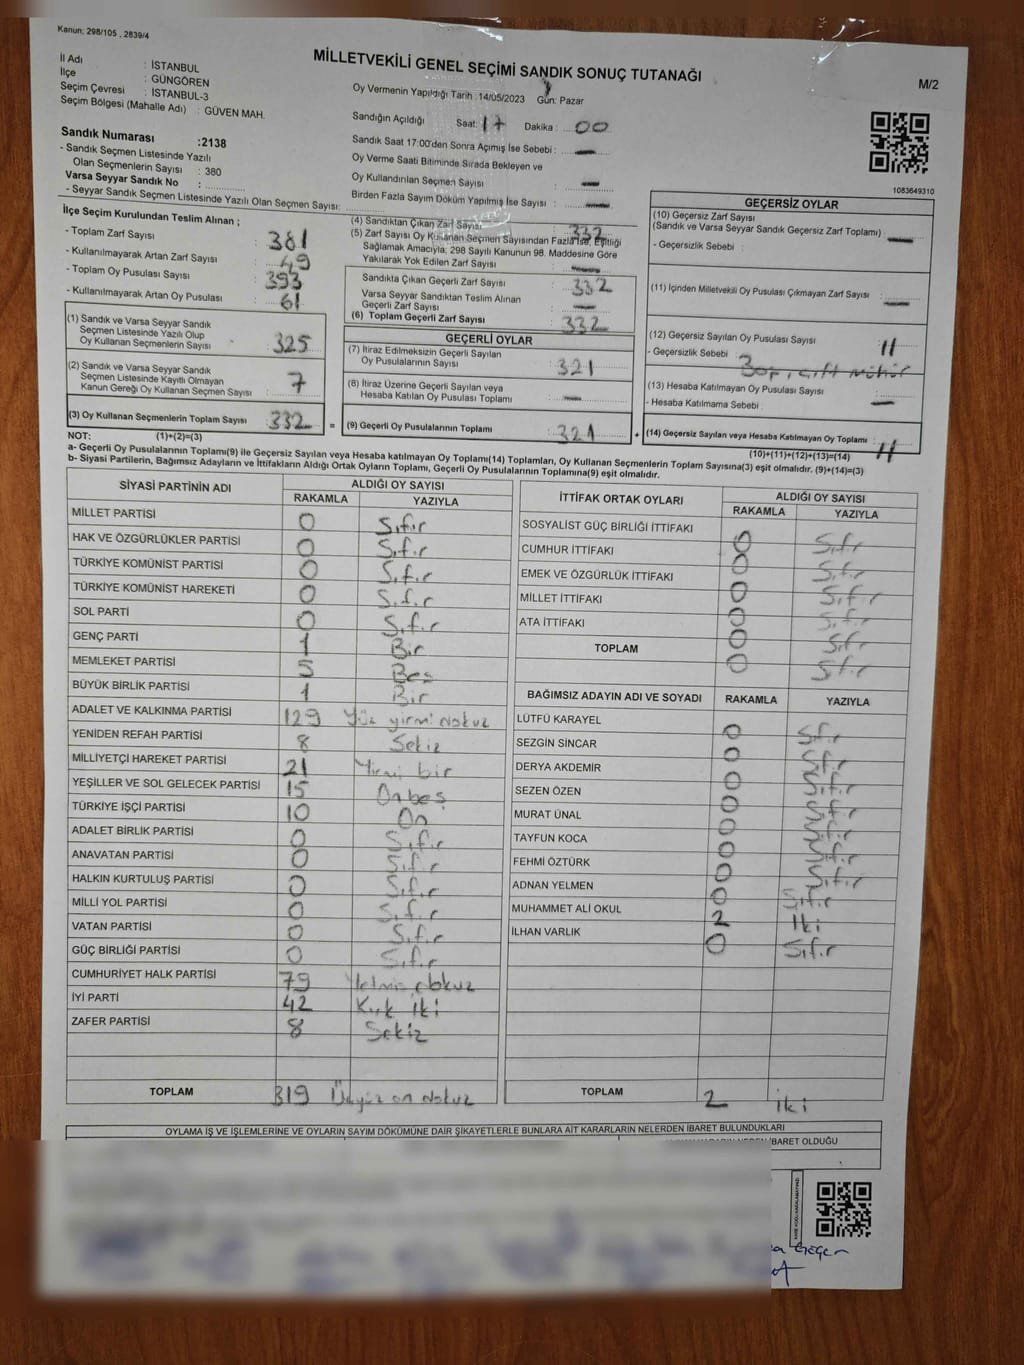 Kanun: 298/105 , 2839/4
MİLLETVEKİLİ GENEL SEÇİMİ SANDIK SONUÇ TUTANAĞI
M/2
İl Adı : İSTANBUL
İlçe : GÜNGÖREN
Seçim Çevresi : İSTANBUL-3
Seçim Bölgesi (Mahalle Adı) : GÜVEN MAH.
Sandık Numarası :2138
- Sandık Seçmen Listesinde Yazılı
Olan Seçmenlerin Sayısı : 380
Varsa Seyyar Sandık No :
- Seyyar Sandık Seçmen Listesinde Yazılı Olan Seçmen Sayısı:
Oy Vermenin Yapıldığı Tarih :14/05/2023 Gün: Pazar
Sandığın Açıldığı Saat: 17 Dakika : 00
Sandık Saat 17:00'den Sonra Açımış İse Sebebi : —
Oy Verme Saati Bitiminde Sırada Bekleyen ve
Oy Kullandırılan Seçmen Sayısı : —
Birden Fazla Sayım Döküm Yapılmış İse Sayısı : —
1083649310
İlçe Seçim Kurulundan Teslim Alınan ;
- Toplam Zarf Sayısı : 381
- Kullanılmayarak Artan Zarf Sayısı : 49
- Toplam Oy Pusulası Sayısı : 393
- Kullanılmayarak Artan Oy Pusulası : 61
(1) Sandık ve Varsa Seyyar Sandık
Seçmen Listesinde Yazılı Olup
Oy Kullanan Seçmenlerin Sayısı : 325
(2) Sandık ve Varsa Seyyar Sandık
Seçmen Listesinde Kayıtlı Olmayan
Kanun Gereği Oy Kullanan Seçmen Sayısı : 7
(3) Oy Kullanan Seçmenlerin Toplam Sayısı : 332 =
(4) Sandıktan Çıkan Zarf Sayısı : 332
(5) Zarf Sayısı Oy Kullanan Seçmen Sayısından Fazla ise, Eşitliği
Sağlamak Amacıyla; 298 Sayılı Kanunun 98. Maddesine Göre
Yakılarak Yok Edilen Zarf Sayısı : —
Sandıkta Çıkan Geçerli Zarf Sayısı : 332
Varsa Seyyar Sandıktan Teslim Alınan
Geçerli Zarf Sayısı : —
(6) Toplam Geçerli Zarf Sayısı : 332
GEÇERLİ OYLAR
(7) İtiraz Edilmeksizin Geçerli Sayılan
Oy Pusulalarının Sayısı : 321
(8) İtiraz Üzerine Geçerli Sayılan veya
Hesaba Katılan Oy Pusulası Toplamı : —
(9) Geçerli Oy Pusulalarının Toplamı : 321 +
GEÇERSİZ OYLAR
(10) Geçersiz Zarf Sayısı
(Sandık ve Varsa Seyyar Sandık Geçersiz Zarf Toplamı) : —
- Geçersizlik Sebebi :
(11) İçinden Milletvekili Oy Pusulası Çıkmayan Zarf Sayısı : —
(12) Geçersiz Sayılan Oy Pusulası Sayısı : 11
- Geçersizlik Sebebi : çift mühür
(13) Hesaba Katılmayan Oy Pusulası Sayısı : —
- Hesaba Katılmama Sebebi :
(14) Geçersiz Sayılan veya Hesaba Katılmayan Oy Toplamı : 11
NOT: (1)+(2)=(3) (10)+(11)+(12)+(13)=(14)
a- Geçerli Oy Pusulalarının Toplamı(9) ile Geçersiz Sayılan veya Hesaba katılmayan Oy Toplamı(14) Toplamları, Oy Kullanan Seçmenlerin Toplam Sayısına(3) eşit olmalıdır. (9)+(14)=(3)
b- Siyasi Partilerin, Bağımsız Adayların ve İttifakların Aldığı Ortak Oyların Toplamı, Geçerli Oy Pusulalarının Toplamına(9) eşit olmalıdır.
SİYASİ PARTİNİN ADI ALDIĞI OY SAYISI
RAKAMLA YAZIYLA
MİLLET PARTİSİ 0 Sıfır
HAK VE ÖZGÜRLÜKLER PARTİSİ 0 Sıfır
TÜRKİYE KOMÜNİST PARTİSİ 0 Sıfır
TÜRKİYE KOMÜNİST HAREKETİ 0 Sıfır
SOL PARTİ 0 Sıfır
GENÇ PARTİ 1 Bir
MEMLEKET PARTİSİ 5 Beş
BÜYÜK BİRLİK PARTİSİ 1 Bir
ADALET VE KALKINMA PARTİSİ 129 Yüz yirmi dokuz
YENİDEN REFAH PARTİSİ 8 Sekiz
MİLLİYETÇİ HAREKET PARTİSİ 21 Yirmi bir
YEŞİLLER VE SOL GELECEK PARTİSİ 15 Onbeş
TÜRKİYE İŞÇİ PARTİSİ 10 On
ADALET BİRLİK PARTİSİ 0 Sıfır
ANAVATAN PARTİSİ 0 Sıfır
HALKIN KURTULUŞ PARTİSİ 0 Sıfır
MİLLİ YOL PARTİSİ 0 Sıfır
VATAN PARTİSİ 0 Sıfır
GÜÇ BİRLİĞİ PARTİSİ 0 Sıfır
CUMHURİYET HALK PARTİSİ 79 Yetmiş dokuz
İYİ PARTİ 42 Kırk iki
ZAFER PARTİSİ 8 Sekiz
TOPLAM 319 Üçyüz on dokuz
İTTİFAK ORTAK OYLARI ALDIĞI OY SAYISI
RAKAMLA YAZIYLA
SOSYALİST GÜÇ BİRLİĞİ İTTİFAKI 0 Sıfır
CUMHUR İTTİFAKI 0 Sıfır
EMEK VE ÖZGÜRLÜK İTTİFAKI 0 Sıfır
MİLLET İTTİFAKI 0 Sıfır
ATA İTTİFAKI 0 Sıfır
TOPLAM 0 Sıfır
BAĞIMSIZ ADAYIN ADI VE SOYADI RAKAMLA YAZIYLA
LÜTFÜ KARAYEL 0 Sıfır
SEZGİN SİNCAR 0 Sıfır
DERYA AKDEMİR 0 Sıfır
SEZEN ÖZEN 0 Sıfır
MURAT ÜNAL 0 Sıfır
TAYFUN KOCA 0 Sıfır
FEHMİ ÖZTÜRK 0 Sıfır
ADNAN YELMEN 0 Sıfır
MUHAMMET ALİ OKUL 2 İki
İLHAN VARLIK 0 Sıfır
TOPLAM 2 iki
OYLAMA İŞ VE İŞLEMLERİNE VE OYLARIN SAYIM DÖKÜMÜNE DAİR ŞİKAYETLERLE BUNLARA AİT KARARLARIN NELERDEN İBARET BULUNDUKLARI
İBARET OLDUĞU